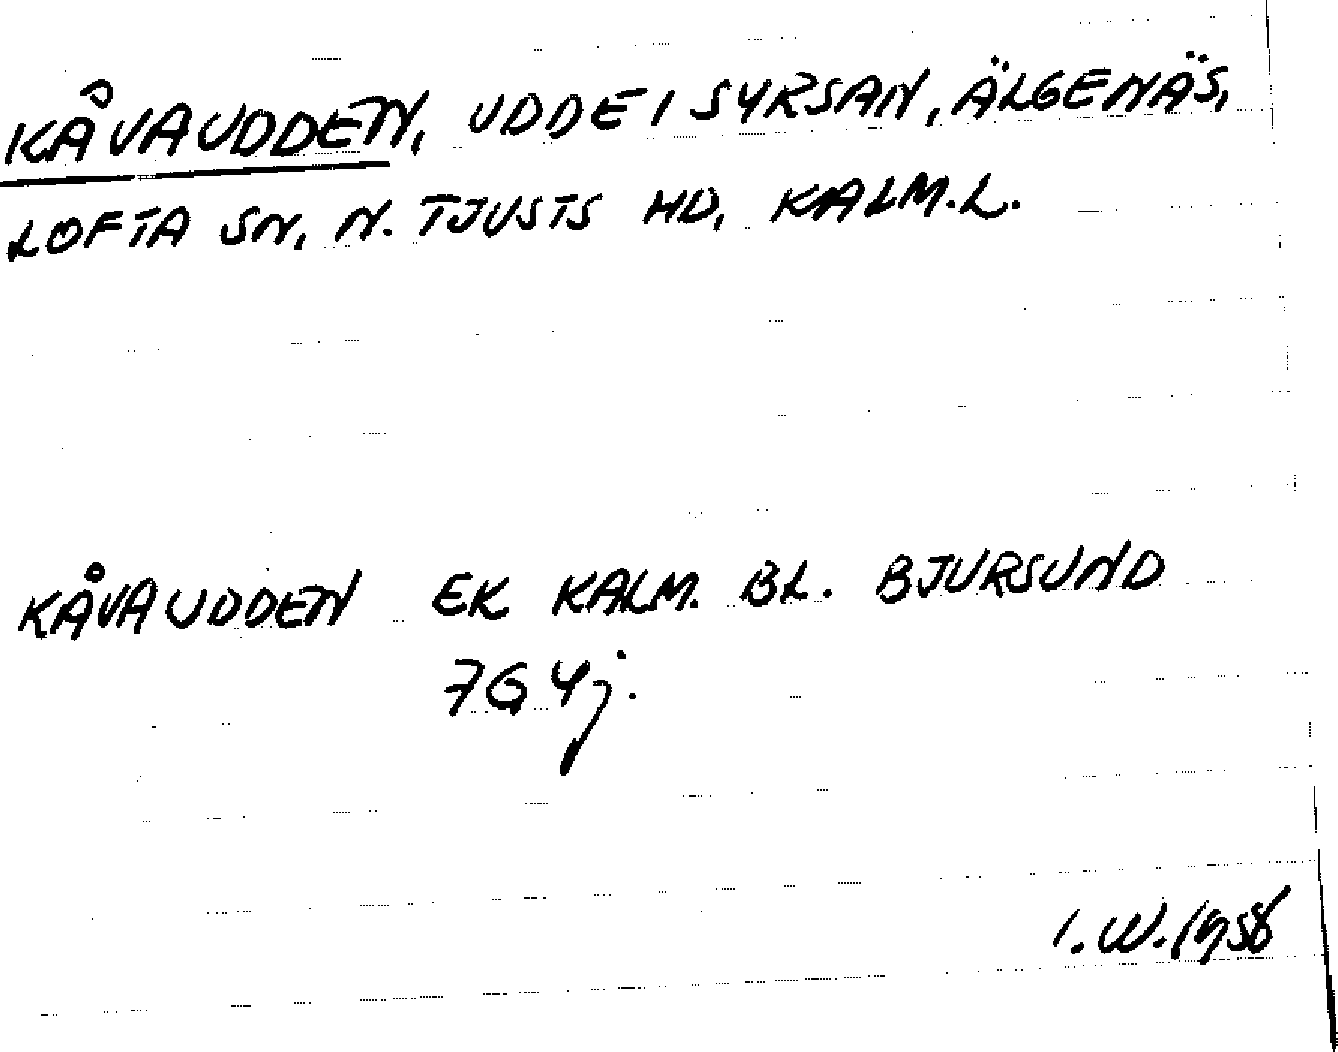 KÅVAUDDEN, UDDE I SYRSAN, ÄLGENÄS,
LOFTA SN, N. TJUSTS HD, KALM.L.
KÅVAUDDEN EK KALM. BL. BJURSUND
7G 4j.
I. W. 1958